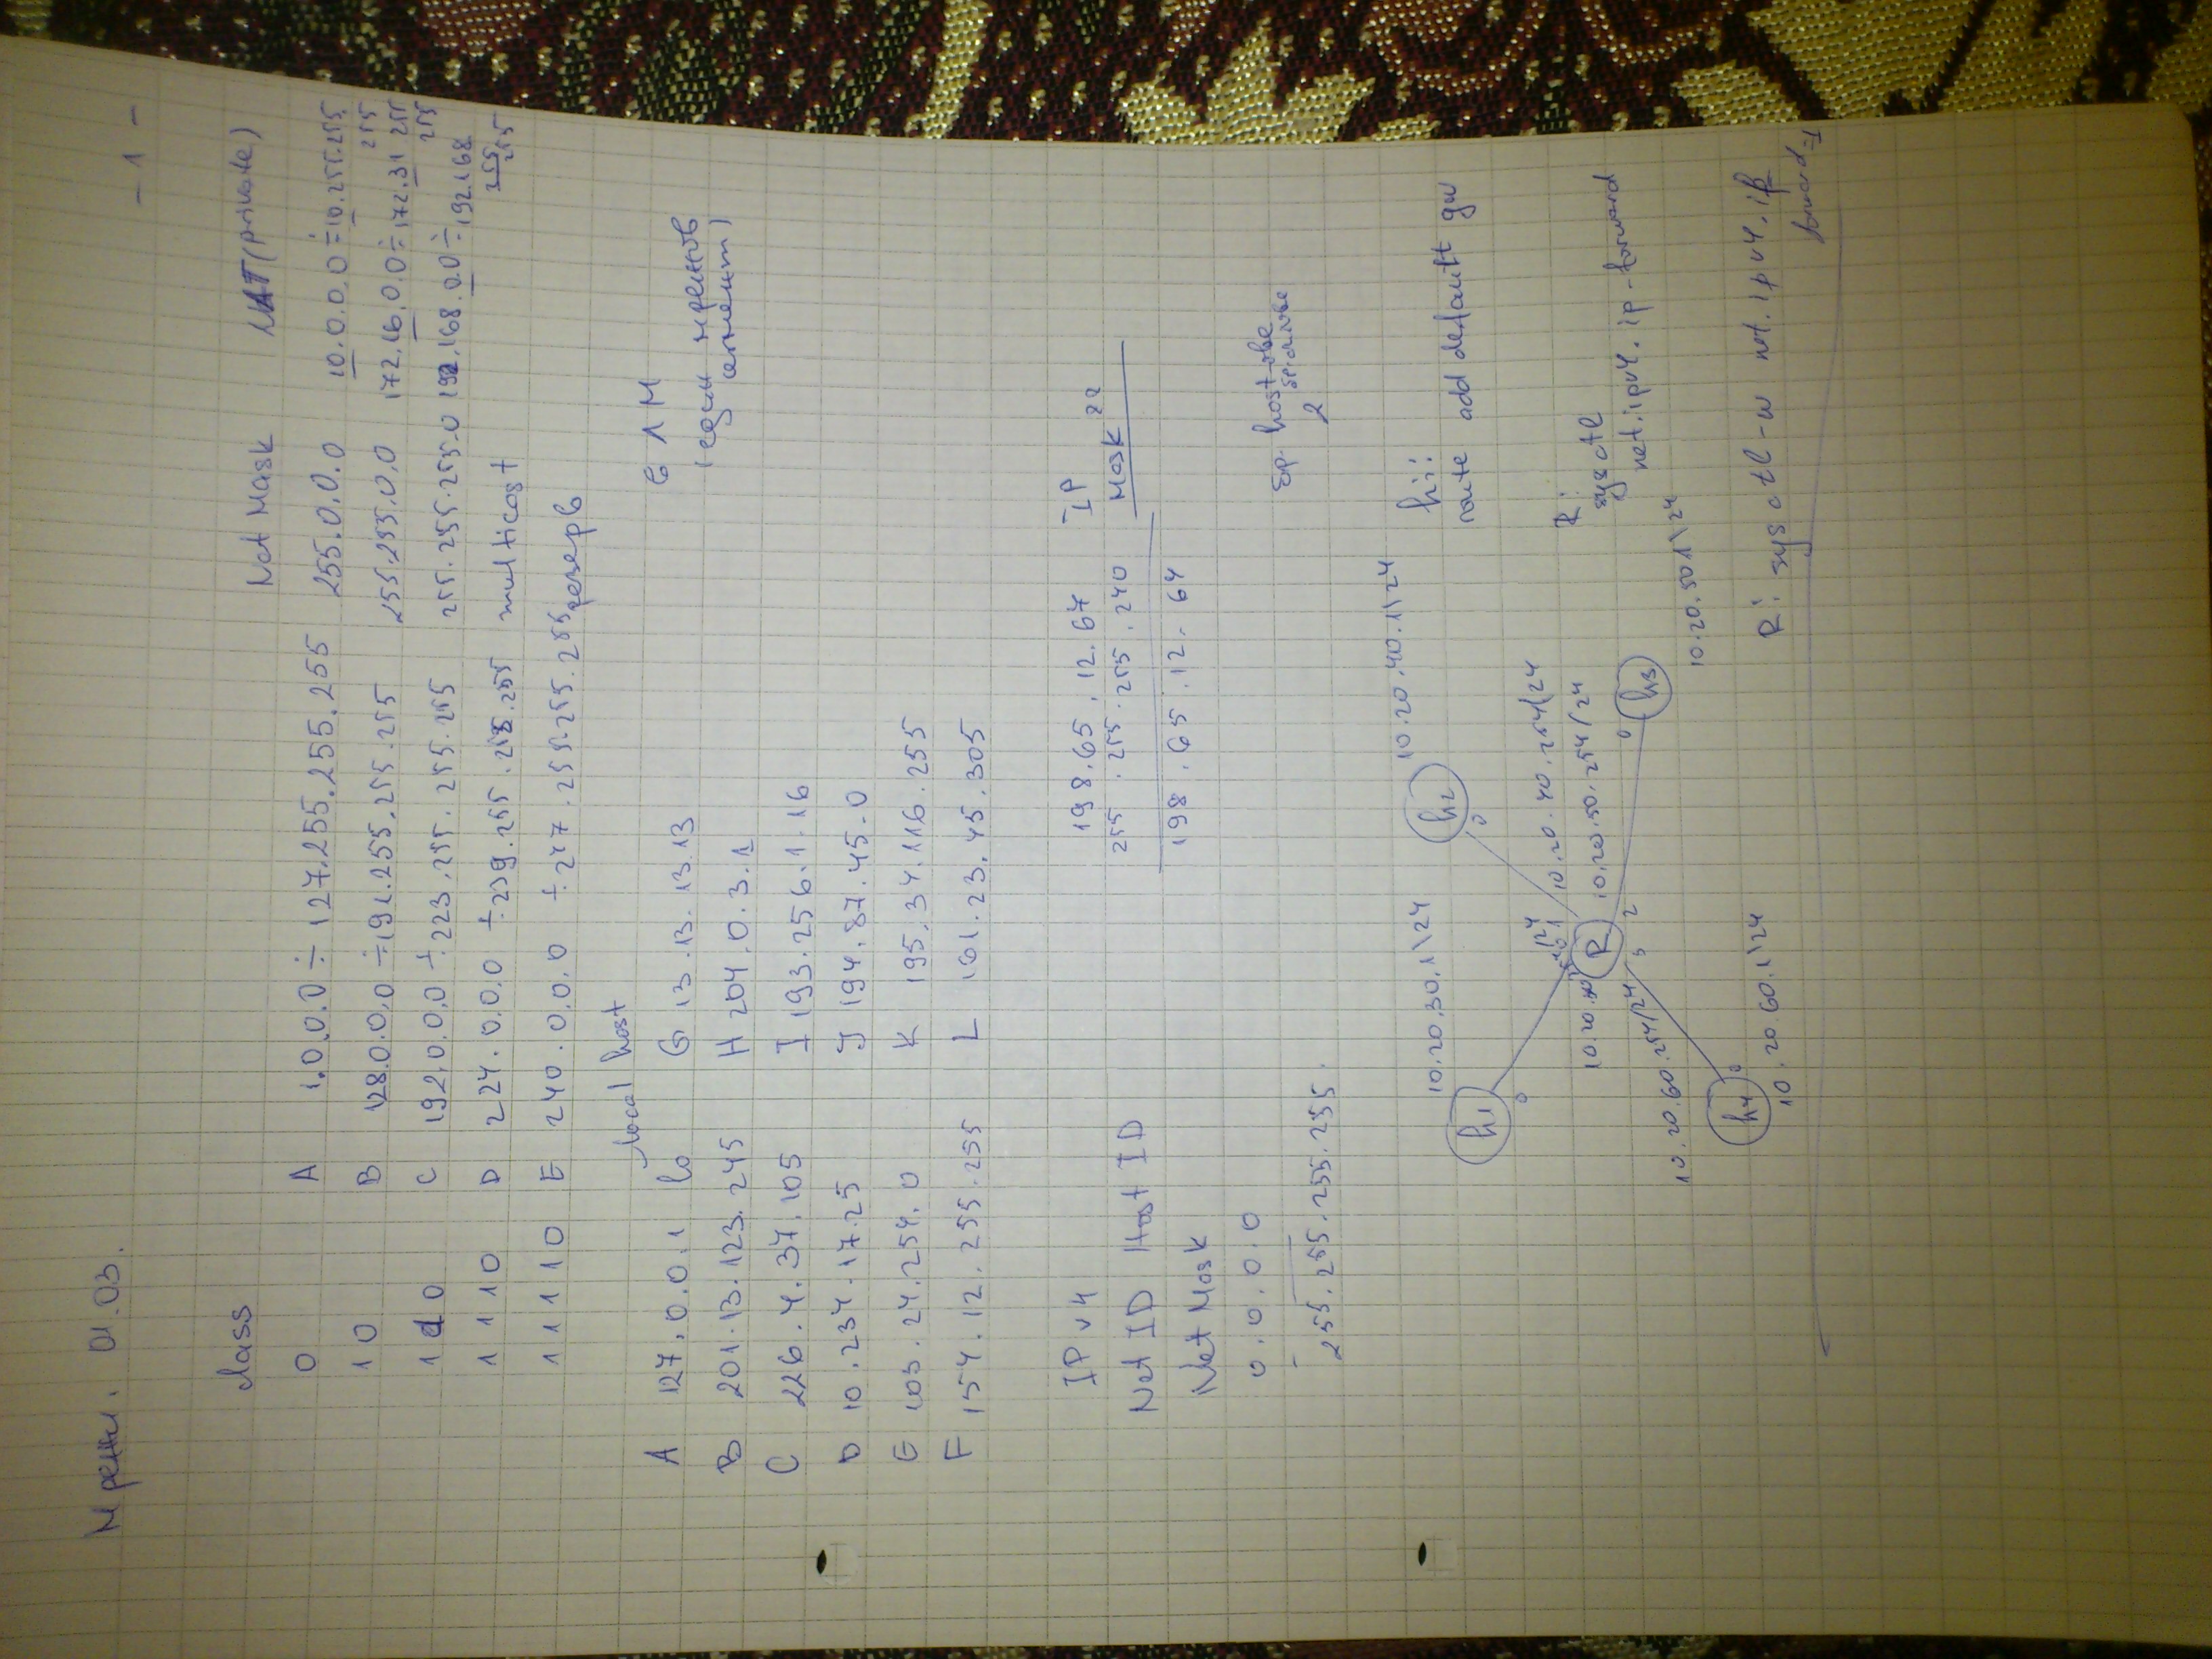 Мрежи. 01.03. - 1 -
Class Net Mask NAT (private)
0 A 1.0.0.0 ÷ 127.255.255.255 255.0.0.0 10.0.0.0 ÷ 10.255.255.
255
10 B 128.0.0.0 ÷ 191.255.255.255 255.255.0.0 172.16.0.0 ÷ 172.31 255
255
110 C 192.0.0.0 ÷ 223.255.255.255 255.255.255.0 192.168.0.0 ÷ 192.168
255.
255
1110 D 224.0.0.0 ÷ 239.255.255.255 multicast
11110 E 240.0.0.0 ÷ 247.255.255.255 резерв
local host
A 127.0.0.1 lo G 13.13.13.13 в 1 М
B 201.13.123.245 H 204.0.3.1 (един мрежов
C 226.4.37.105 I 193.256.1.16 сегмент)
D 10.234.17.25 J 194.87.45.0
E 103.24.254.0 K 195.34.116.255
F 154.12.255.255 L 161.23.45.305
IP v4 198.65.12.67 IP
Net ID Host ID 255.255.255.240 Mask
Net Mask 198.65.12.64
0.0.0.0 бр. host-ове
2
255.255.255.255.
10.20.30.1\24 10.20.40.1\24 h1:
h1 h2 route add default gw
0 0
10.20.40.254/24 R:
10.20.50.254/24 sysctl
R net.ipv4.ip-forward
10.20.60.254/24 3 2 0 h3
10.20.50.1\24
h4 0
10.20.60.1\24 R: sysctl -w net.ipv4.ip
forward=1